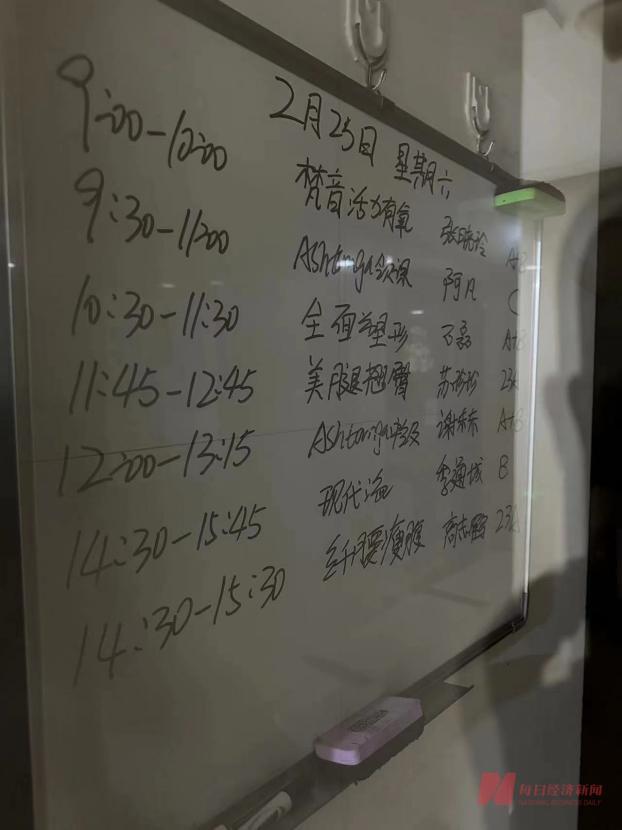 2月25日 星期六
9:00-10:00 梵音活力有氧 张晓玲
9:30-11:00 Ashtanga 阿凡 C
10:30-11:30 全面塑形 石磊 A+B
11:45-12:45 美腿翘臀 苏 23A
12:00-13:15 Ashtanga 谢 A+B
14:30-15:45 现代 李 城 B
14:30-15:30 纤腰瘦腹 高志 23A
每日经济新闻
NATIONAL BUSINESS DAILY